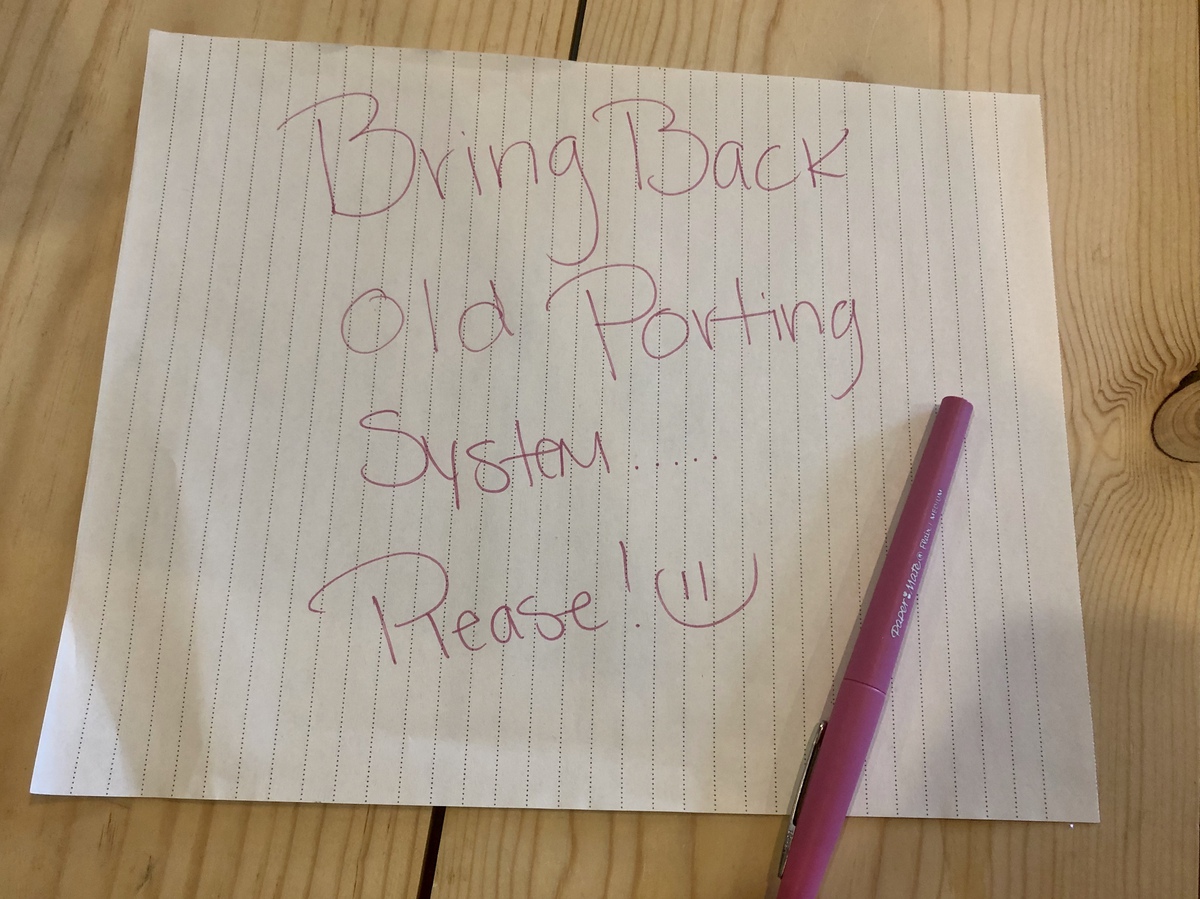 Bring Back
Old Porting
System.....
Please! =)
Paper Mate® Flair | MEDIUM